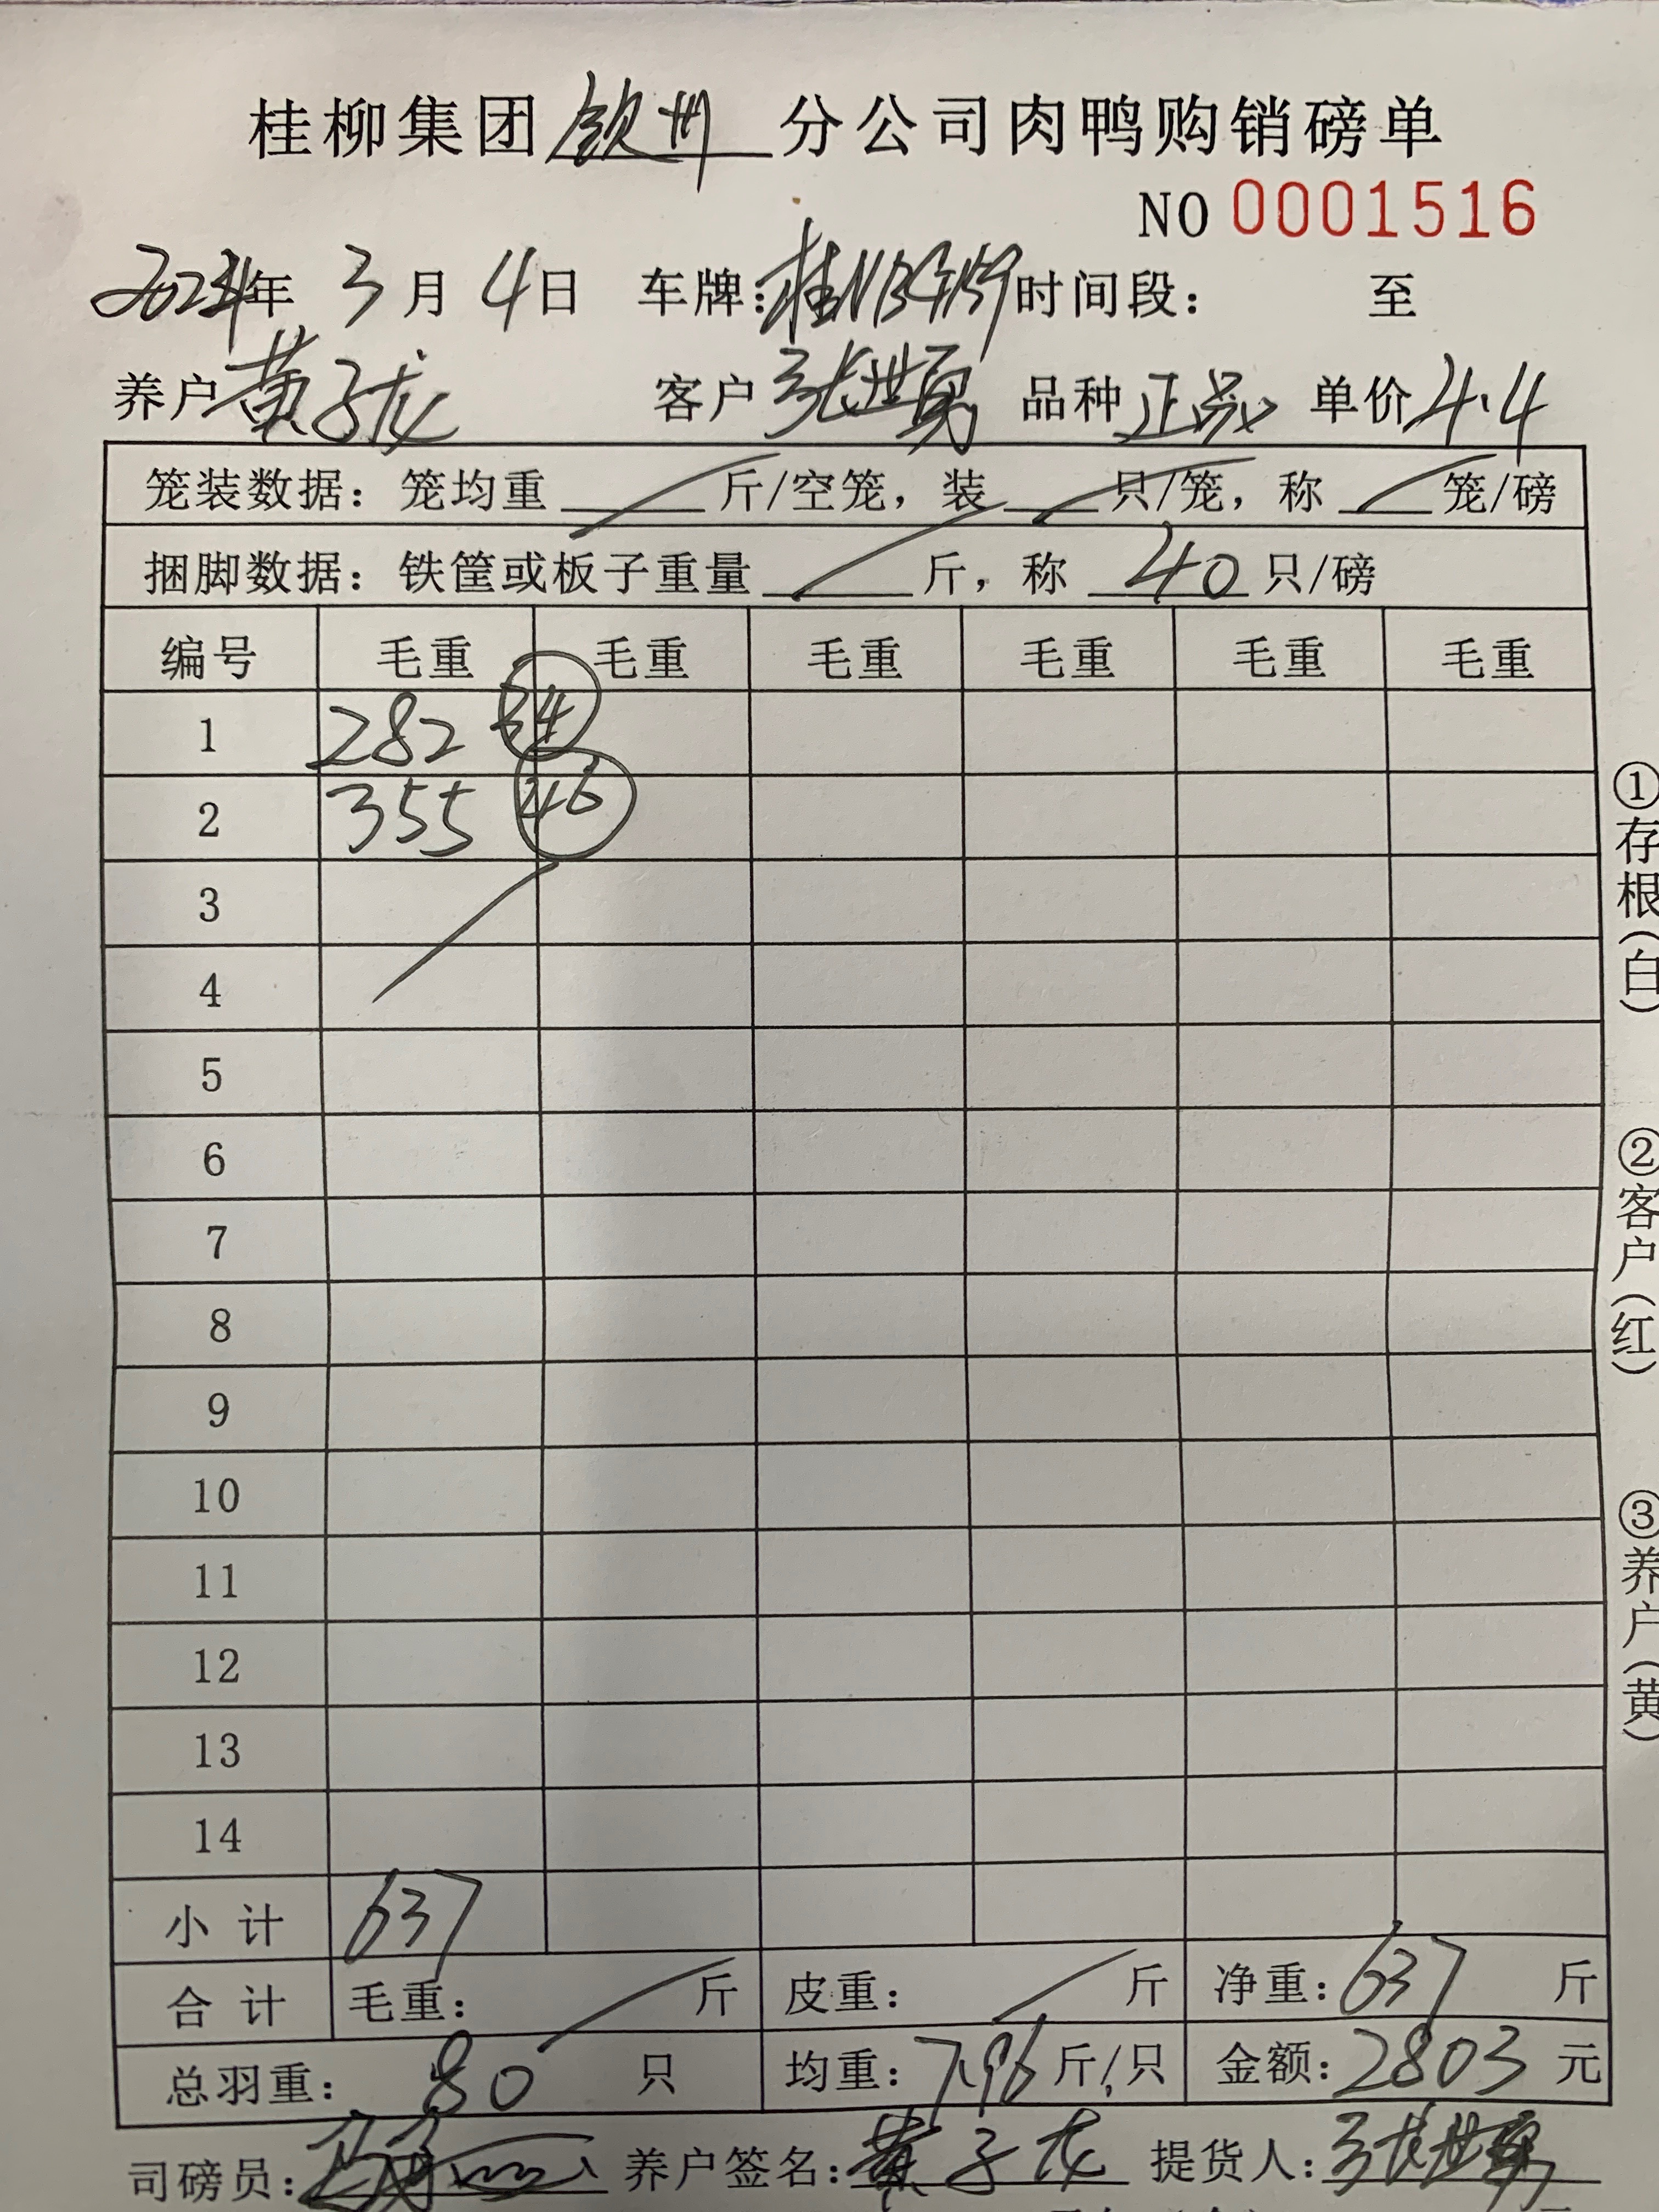 桂柳集团钦州分公司肉鸭购销磅单
NO 0001516
年 3月 4日 车牌:桂N 时间段: 至
养户黄子龙 客户张世勇 品种正品 单价4.4
笼装数据: 笼均重 斤/空笼, 装 只/笼, 称 笼/磅
捆脚数据: 铁筐或板子重量 斤, 称 40 只/磅
编号 毛重 毛重 毛重 毛重 毛重 毛重
1 282 34
2 355 46
3
4
5
6
7
8
9
10
11
12
13
14
小计 637
合计 毛重: 斤 皮重: 斤 净重: 637 斤
总羽重: 80 只 均重: 7.96 斤/只 金额: 2803 元
司磅员: 养户签名: 黄子龙 提货人: 张世勇
①存根(白)
②客户(红)
③养户(黄)